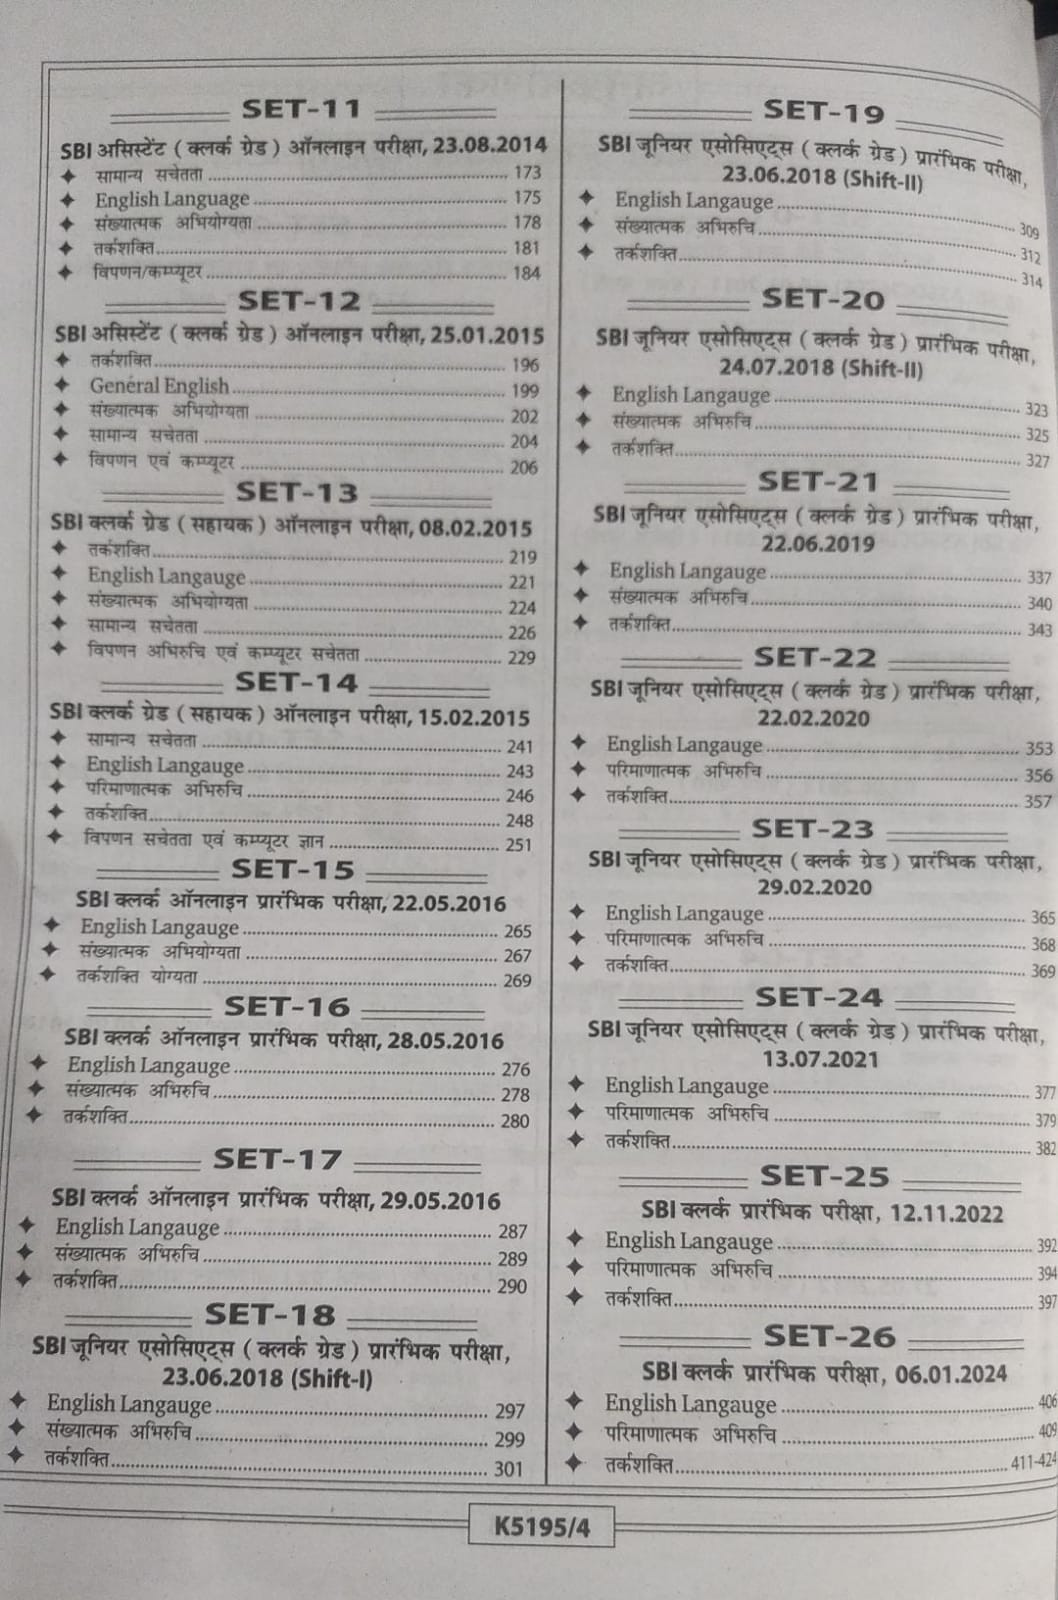 SET-11
SBI असिस्टेंट ( क्लर्क ग्रेड ) ऑनलाइन परीक्षा, 23.08.2014
✦ सामान्य सचेतता ........ 173
✦ English Language ........ 175
✦ संख्यात्मक अभियोग्यता ........ 178
✦ तर्कशक्ति ........ 181
✦ विपणन/कम्प्यूटर ........ 184
SET-12
SBI असिस्टेंट ( क्लर्क ग्रेड ) ऑनलाइन परीक्षा, 25.01.2015
✦ तर्कशक्ति ........ 196
✦ General English ........ 199
✦ संख्यात्मक अभियोग्यता ........ 202
✦ सामान्य सचेतता ........ 204
✦ विपणन एवं कम्प्यूटर ........ 206
SET-13
SBI क्लर्क ग्रेड ( सहायक ) ऑनलाइन परीक्षा, 08.02.2015
✦ तर्कशक्ति ........ 219
✦ English Langauge ........ 221
✦ संख्यात्मक अभियोग्यता ........ 224
✦ सामान्य सचेतता ........ 226
✦ विपणन अभिरुचि एवं कम्प्यूटर सचेतता ........ 229
SET-14
SBI क्लर्क ग्रेड ( सहायक ) ऑनलाइन परीक्षा, 15.02.2015
✦ सामान्य सचेतता ........ 241
✦ English Langauge ........ 243
✦ परिमाणात्मक अभिरुचि ........ 246
✦ तर्कशक्ति ........ 248
✦ विपणन सचेतता एवं कम्प्यूटर ज्ञान ........ 251
SET-15
SBI क्लर्क ऑनलाइन प्रारंभिक परीक्षा, 22.05.2016
✦ English Langauge ........ 265
✦ संख्यात्मक अभियोग्यता ........ 267
✦ तर्कशक्ति योग्यता ........ 269
SET-16
SBI क्लर्क ऑनलाइन प्रारंभिक परीक्षा, 28.05.2016
✦ English Langauge ........ 276
✦ संख्यात्मक अभिरुचि ........ 278
✦ तर्कशक्ति ........ 280
SET-17
SBI क्लर्क ऑनलाइन प्रारंभिक परीक्षा, 29.05.2016
✦ English Langauge ........ 287
✦ संख्यात्मक अभिरुचि ........ 289
✦ तर्कशक्ति ........ 290
SET-18
SBI जूनियर एसोसिएट्स ( क्लर्क ग्रेड ) प्रारंभिक परीक्षा,
23.06.2018 (Shift-I)
✦ English Langauge ........ 297
✦ संख्यात्मक अभिरुचि ........ 299
✦ तर्कशक्ति ........ 301
SET-19
SBI जूनियर एसोसिएट्स ( क्लर्क ग्रेड ) प्रारंभिक परीक्षा,
23.06.2018 (Shift-II)
✦ English Langauge ........ 309
✦ संख्यात्मक अभिरुचि ........ 312
✦ तर्कशक्ति ........ 314
SET-20
SBI जूनियर एसोसिएट्स ( क्लर्क ग्रेड ) प्रारंभिक परीक्षा,
24.07.2018 (Shift-II)
✦ English Langauge ........ 323
✦ संख्यात्मक अभिरुचि ........ 325
✦ तर्कशक्ति ........ 327
SET-21
SBI जूनियर एसोसिएट्स ( क्लर्क ग्रेड ) प्रारंभिक परीक्षा,
22.06.2019
✦ English Langauge ........ 337
✦ संख्यात्मक अभिरुचि ........ 340
✦ तर्कशक्ति ........ 343
SET-22
SBI जूनियर एसोसिएट्स ( क्लर्क ग्रेड ) प्रारंभिक परीक्षा,
22.02.2020
✦ English Langauge ........ 353
✦ परिमाणात्मक अभिरुचि ........ 356
✦ तर्कशक्ति ........ 357
SET-23
SBI जूनियर एसोसिएट्स ( क्लर्क ग्रेड ) प्रारंभिक परीक्षा,
29.02.2020
✦ English Langauge ........ 365
✦ परिमाणात्मक अभिरुचि ........ 368
✦ तर्कशक्ति ........ 369
SET-24
SBI जूनियर एसोसिएट्स ( क्लर्क ग्रेड ) प्रारंभिक परीक्षा,
13.07.2021
✦ English Langauge ........ 377
✦ परिमाणात्मक अभिरुचि ........ 379
✦ तर्कशक्ति ........ 382
SET-25
SBI क्लर्क प्रारंभिक परीक्षा, 12.11.2022
✦ English Langauge ........ 392
✦ परिमाणात्मक अभिरुचि ........ 394
✦ तर्कशक्ति ........ 397
SET-26
SBI क्लर्क प्रारंभिक परीक्षा, 06.01.2024
✦ English Langauge ........ 406
✦ परिमाणात्मक अभिरुचि ........ 409
✦ तर्कशक्ति ........ 411-424
K5195/4